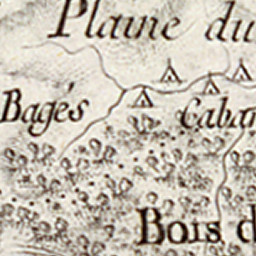 Plaine du
Bagés
Caban
Bois d